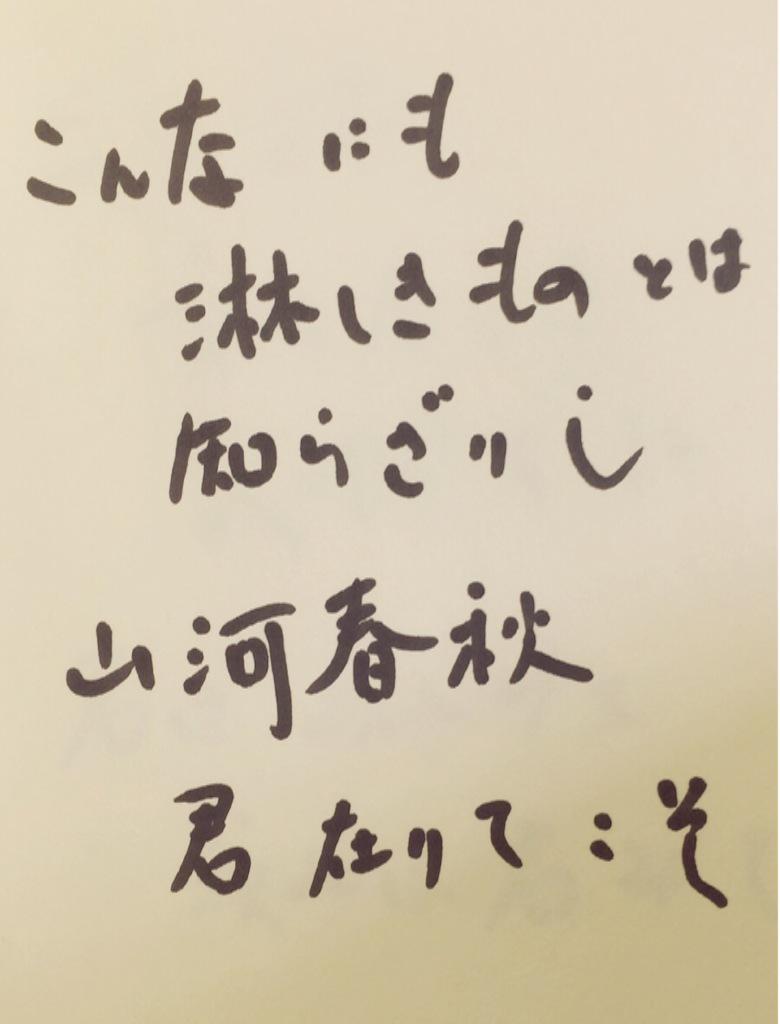 こんなにも
淋しきものとは
知らざりし
山河春秋
君在りてこそ